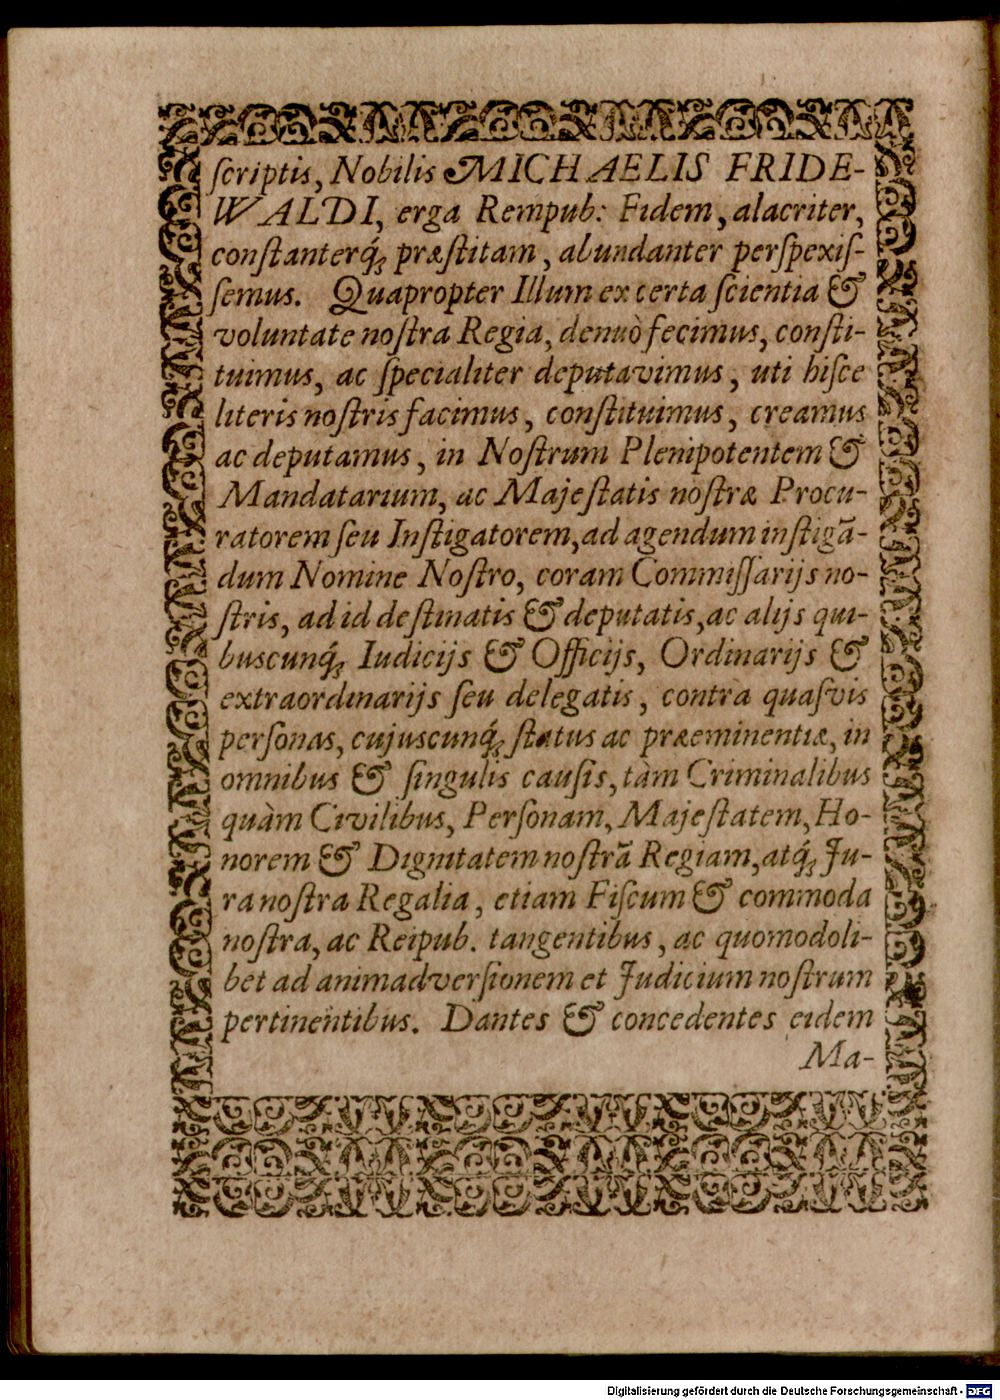 ſcriptis, Nobilis MICHAELIS FRIDE-
WALDI, erga Rempub: Fidem, alacriter,
conſtanterq́; præſtitam, abundanter perſpexiſ-
ſemus. Quapropter Illum ex certa ſcientia &
voluntate noſtra Regia, denuò fecimus, conſti-
tuimus, ac ſpecialiter deputavimus, uti hiſce
literis noſtris facimus, conſtituimus, creamus
ac deputamus, in Noſtrum Plenipotentem &
Mandatarium, ac Majeſtatis noſtræ Procu-
ratorem ſeu Inſtigatorem, ad agendum inſtigā-
dum Nomine Noſtro, coram Commiſſarijs no-
ſtris, ad id deſtinatis & deputatis, ac alijs qui-
buscunq́; Iudicijs & Officijs, Ordinarijs &
extraordinarijs ſeu delegatis, contra quaſvis
perſonas, cujuscunq́; ſtatus ac præeminentiæ, in
omnibus & ſingulis cauſis, tàm Criminalibus
quàm Civilibus, Perſonam, Majeſtatem, Ho-
norem & Dignitatem noſtrā Regiam, atq́; Ju-
ra noſtra Regalia, etiam Fiſcum & commoda
noſtra, ac Reipub. tangentibus, ac quomodoli-
bet ad animadverſionem et Judicium noſtrum
pertinentibus. Dantes & concedentes eidem
Ma-
Digitalisierung gefördert durch die Deutsche Forschungsgemeinschaft - DFG